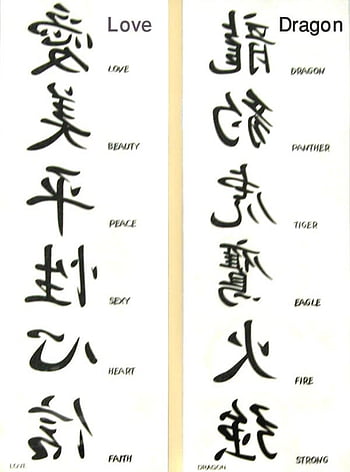 Love
愛
LOVE
美
BEAUTY
平
PEACE
性
SEXY
心
HEART
信
FAITH
LOVE
Dragon
DRAGON
豹
PANTHER
虎
TIGER
鷹
EAGLE
火
FIRE
強
STRONG
DRAGON